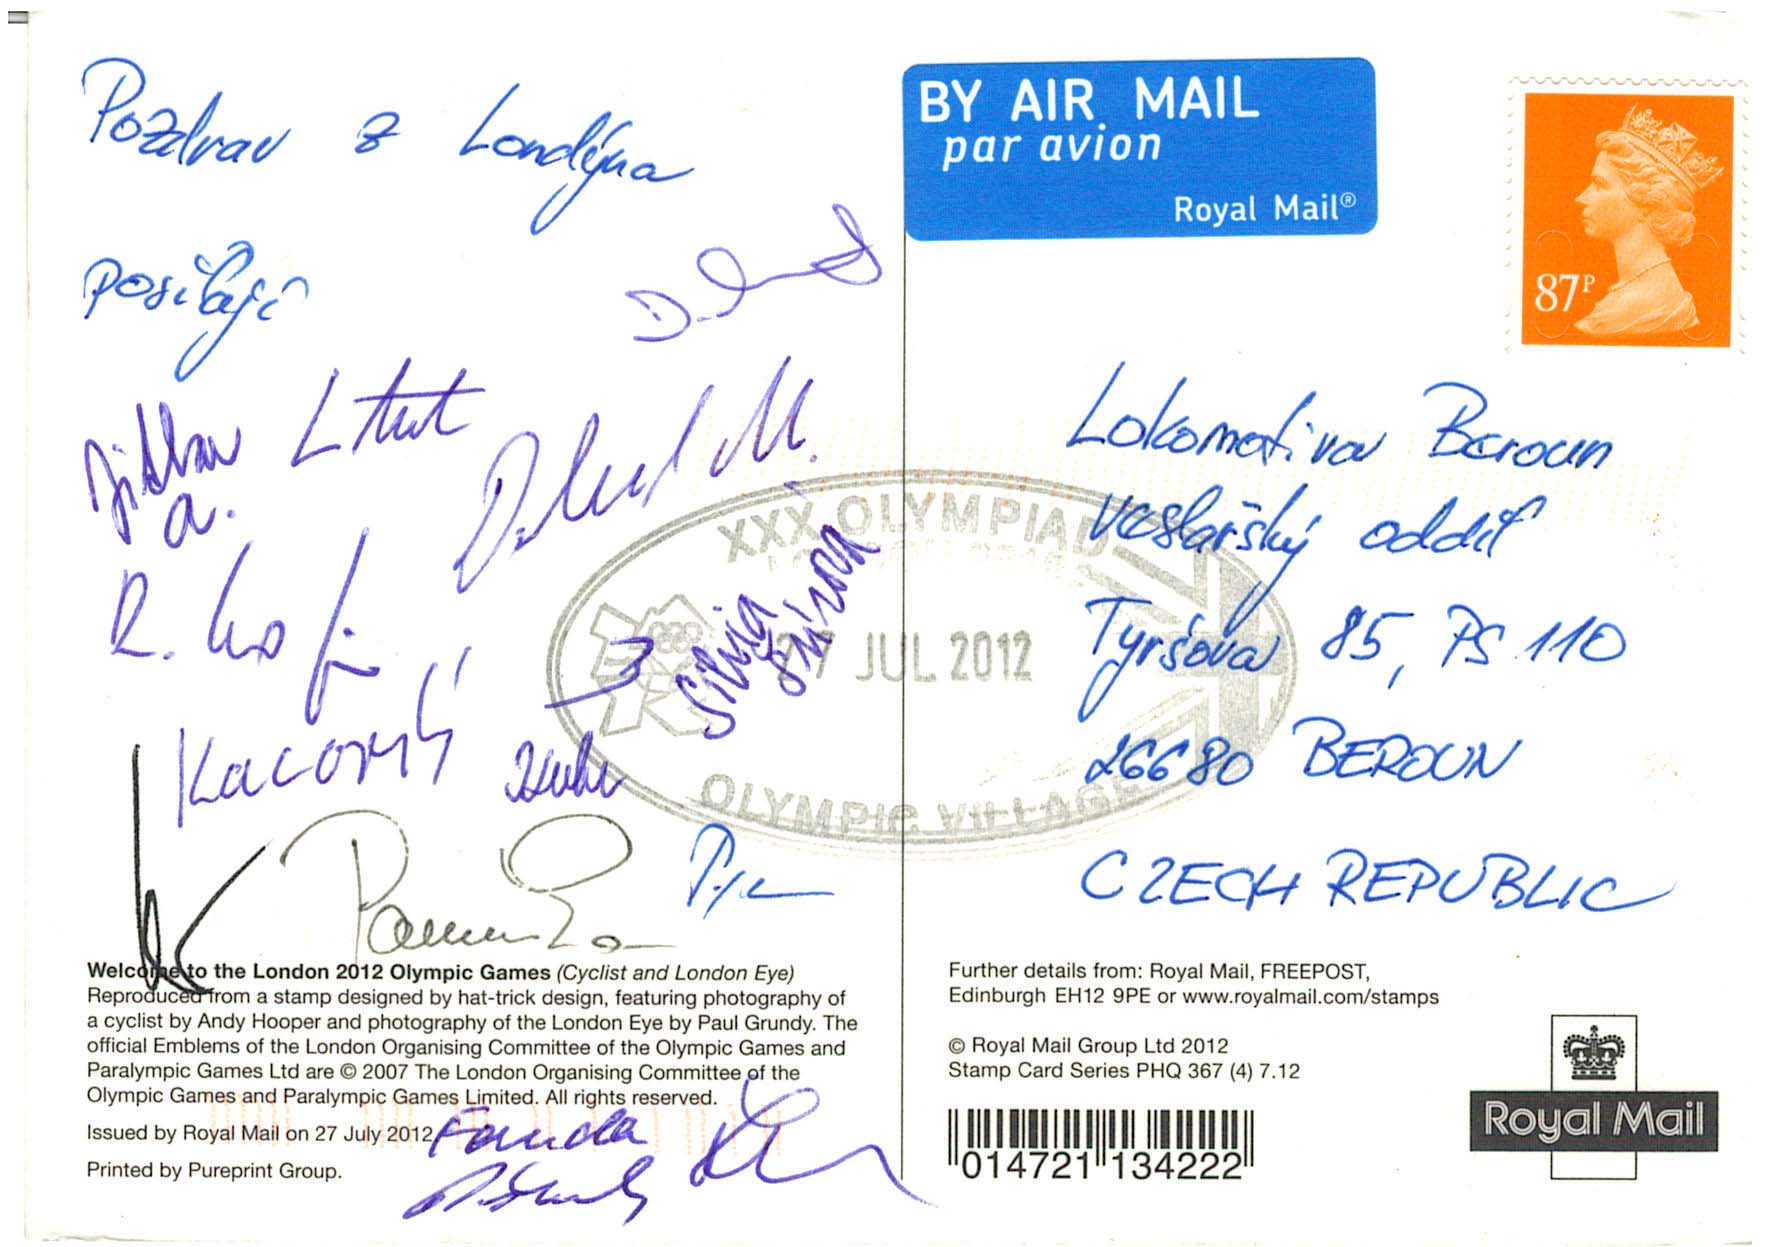 Pozdrav z Londýna
posílají
BY AIR MAIL
par avion
Royal Mail®
87P
Lokomotiva Beroun
veslařský oddíl
Tyršova 85, PS 110
26680 BEROUN
CZECH REPUBLIC
XXX OLYMPIAD
27 JUL 2012
OLYMPIC VILLAGE
Welcome to the London 2012 Olympic Games (Cyclist and London Eye)
Reproduced from a stamp designed by hat-trick design, featuring photography of
a cyclist by Andy Hooper and photography of the London Eye by Paul Grundy. The
official Emblems of the London Organising Committee of the Olympic Games and
Paralympic Games Ltd are © 2007 The London Organising Committee of the
Olympic Games and Paralympic Games Limited. All rights reserved.
Issued by Royal Mail on 27 July 2012
Printed by Pureprint Group.
Fanda
Further details from: Royal Mail, FREEPOST,
Edinburgh EH12 9PE or www.royalmail.com/stamps
© Royal Mail Group Ltd 2012
Stamp Card Series PHQ 367 (4) 7.12
014721 134222
Royal Mail